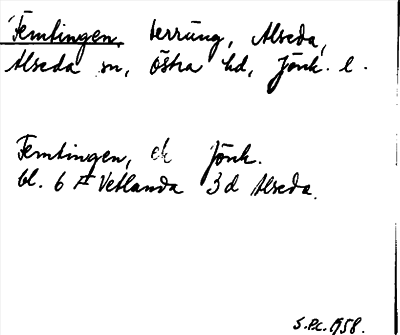 Femtingen, terräng, Alseda,
Alseda sn, Östra hd, Jönk. l.
Femtingen, ek Jönk.
bl. 6 F Vetlanda 3d Alseda.
S.P.C. 1958.